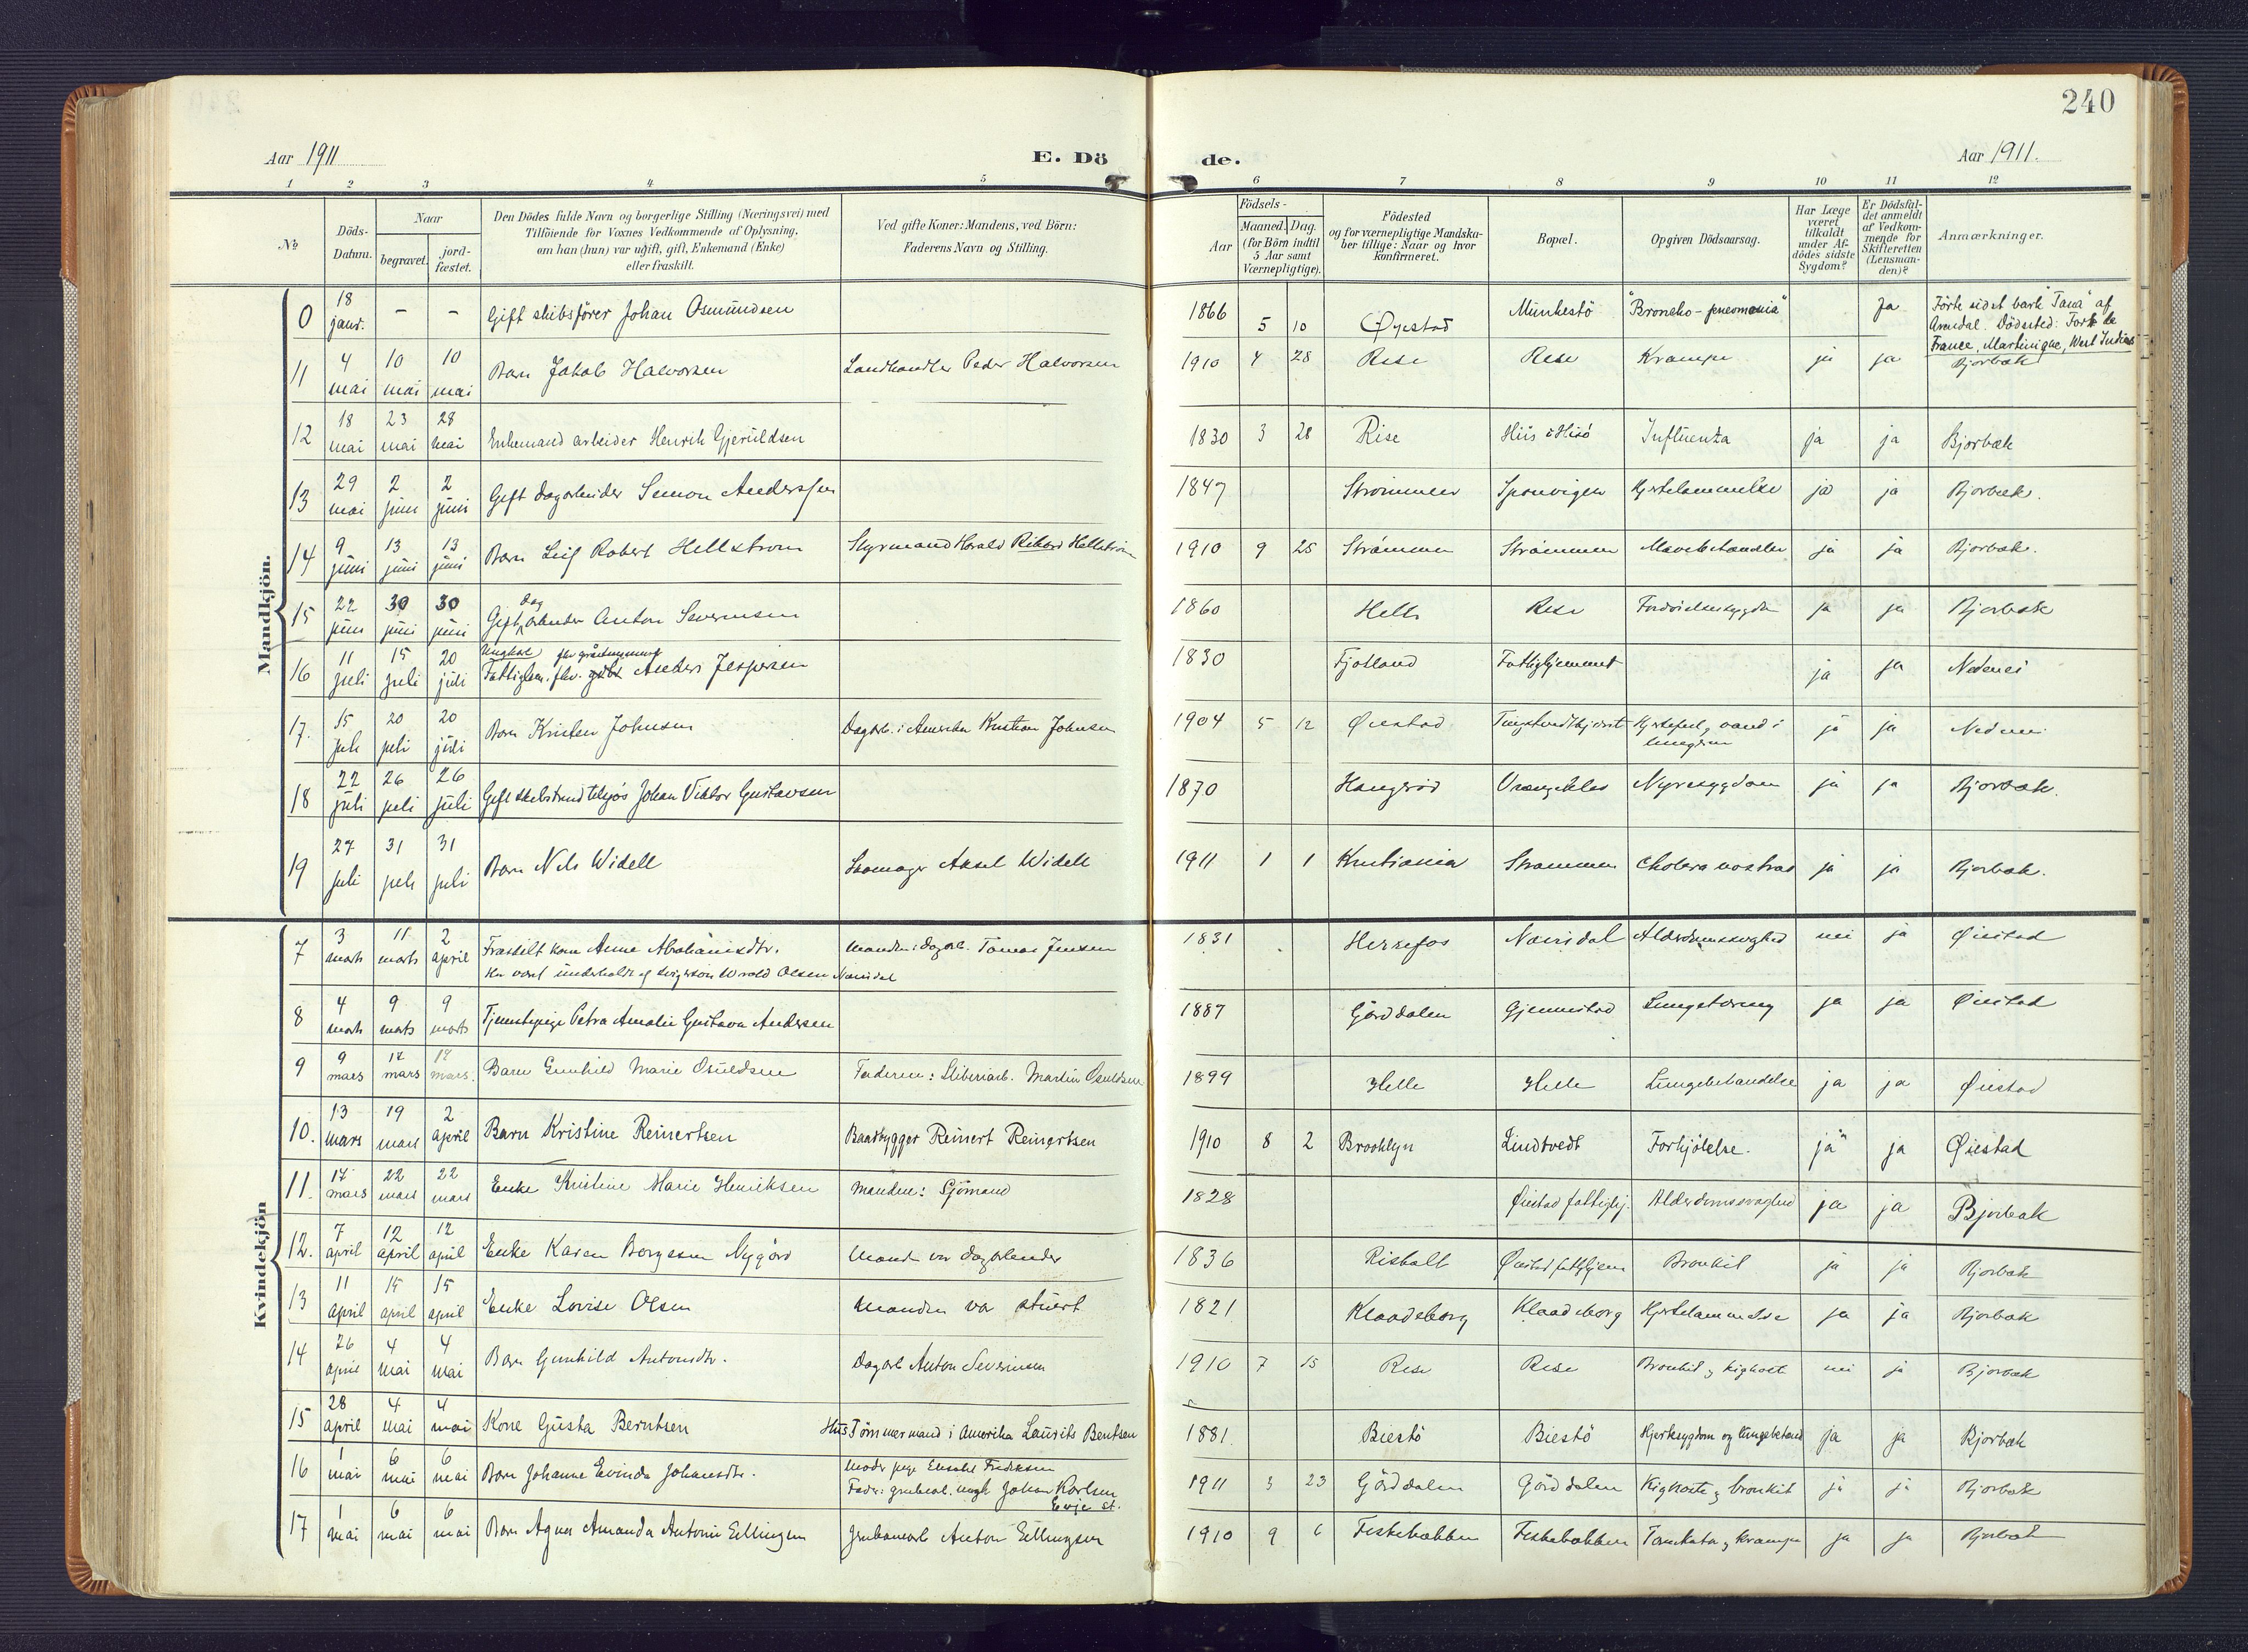 240
Aar 1911
E. Dö
de.
Aar 1911.
1 2 3 4 5 6 7 8 9 10 11 12
No
Döds-
Datum.
Naar
begravet.
jord-
fæstet.
Den Dödes fulde Navn og borgerlige Stilling (Næringsvei) med
Tilföiende for Voxnes Vedkommende af Oplysning,
om han (hun) var ugift, gift, Enkemand (Enke)
eller fraskilt.
Ved gifte Koner: Mandens, ved Börn:
Faderens Navn og Stilling.
Födsels-
Aar
Maaned. Dag.
(for Börn indtil
5 Aar samt
Værnepligtige).
Födested
og for værnepligtige Mandska-
ber tillige: Naar og hvor
konfirmeret.
Bopæl.
Opgiven Dödsaarsag.
Har Læge
været
tilkaldt
under Af-
dödes sidste
Sygdom?
Er Dödsfal-
det anmeldt
af Vedkom-
mende for
Skifteretten
(Lensman-
den)?
Anmærkninger.
Mandkjön.
0 18 janr. – – Gift skibsfører Johan Osmundsen 1866 5 10 Øyestad Munkestö "Broncho-pneomonia" Ja Förte sidst bark "Tana" af
Arendal. Dödssted: Fort de
France, Martinique, West Indies
11 4 mai 10 mai 10 mai Barn Jakob Halvorsen Landhandler Peder Halvorsen 1910 4 28 Rise Rise Krampe ja ja Bjorbæk
12 18 mai 23 mai 28 mai Enkemand arbeider Henrik Gjeruldsen 1830 3 28 Rise Hiis i Hisö Influenza ja ja Bjorbæk
13 29 mai 2 juni 2 juni Gift dagarbeider Simon Anderssen 1847 Strömmen Sponvigen Hjertelammelse ja ja Bjorbæk.
14 9 juni 13 juni 13 juni Barn Leif Robert Hellstrom Styrmand Harald Rikard Hellström 1910 9 25 Strömmen Strömmen ja ja Bjorbæk.
15 22 juni 30 juni 30 juni Gift dagarbeider Anton Severinsen 1860 Helle Rise Fordöielsessygdom ja ja Bjorbæk
16 11 juli 15 juli 20 juli Ungkarl
Fattiglem. fhv. Anders Jespersen 1830 Fjotland Fattighjemmet ja ja Nedenes
17. 15 juli 20 juli 20 juli Barn Kristen Johnsen Dagarb. i Amerika Kristian Johnsen 1904 5 12 Øiestad Hjertefeil, vand i
lungerne ja ja Nedenes
18 22 juli 26 juli 26 juli Gift skibstimmermand Johan Viktor Gustavsen 1870 Vrengekilen Nyresygdom ja ja Bjorbæk.
19 27 juli 31 juli 31 juli Barn Nils Widell Skomager Aksel Widell 1911 1 1 Kristiania Strömmen Cholera nostras ja ja Bjorbæk.
Kvindekjön
7 3 marts 11 marts 2 april Fraskilt kone Anne Abrahamsdtr. Manden: Dagarb. Tomas Jensen 1831 Herrefos Næsdal Alderdomssvaghed nei ja Øiestad
Har været underholdt af svigersøn Olsen
8 4 marts 9 marts 9 marts Tjenestepige Petra Amalie Gustava Andersen 1887 Gårddalen Gjennestad Lungetæring ja ja Øiestad
9 9 mars 17 mars 17 mars. Barn Gunhild Marie Osuldsen Faderen: Sliberiarb. Martin Osuldsen 1899 Helle Helle Lungebetændelse ja ja Øiestad
10. 13 mars 19 mars 2 april Barn Kristine Reinertsen Baadbygger Reinert Reinertsen 1910 8 2 Brooklyn Lindtvedt Forkjölelse. ja ja Øiestad
11. 17 mars 22 mars 22 mars Enke Kristine Marie Henriksen Manden: Sjömand 1828 Øiestad fattighj. Alderdomssvaghed ja ja Bjorbæk
12. 7 april 12 april 12 april Enke Karen Borgesen Nygård Mand var dagarbeider 1836 Risholt Øiestad fattighjem Bronkit ja ja Bjorbæk
13 11 april 15 april 15 april Enke Lovise Olsen Manden var stuert 1821 Klaadeborg Klaadeborg Hjertelammelse ja ja Bjorbæk
14 26 april 4 mai 4 mai Barn Gunhild Antonsdtr. Dagarb Anton Severinsen 1910 7 15 Rise Rise Bronkit og kighoste nei ja Bjorbæk
15 28 april 4 mai 4 mai Kone Gusta Berntsen Hus Tömmermand i Amerika Laurits Bentsen 1881. Biestö Biestö Hjertesygdom og lungebetænd ja ja Bjorbæk
16 1 mai 6 mai 6 mai Barn Johanne Evinda Johansdtr. Moder pige Elisabet Fredriksen
Fader: grubearb. ungk Johan Karlsen
Evje st. 1911 3 23 Gårddalen Gårddalen Kighoste og bronkit ja ja Bjorbæk
17 1 mai 6 mai 6 mai Barn Agnes Amanda Antonie Ellingsen Grubearb Anton Ellingsen 1910 9 6 Fiskebækken Fiskebækken krampe ja ja Bjorbæk